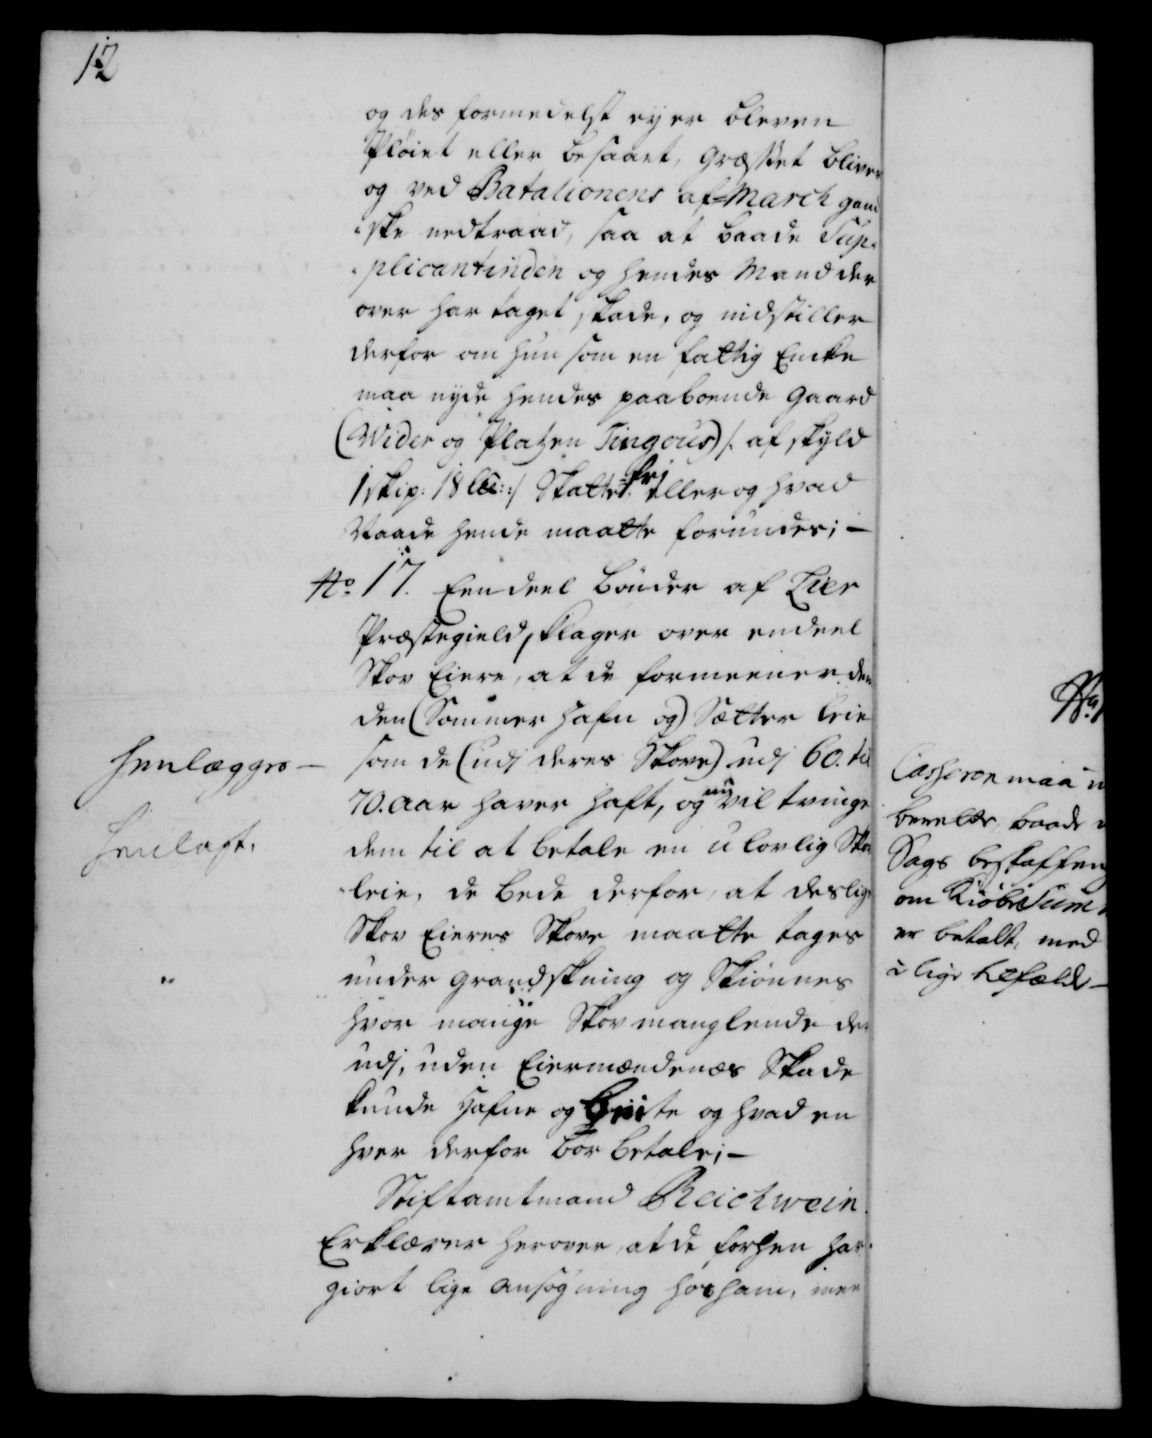 12
og des formedelst eyer bleven
Pløiet eller besaaet, Græsset bliver
og ved Batalionens af March gand
ske nedtraad, saa at baade Sup-
plicantinden og hendes Mand der
over har taget skade, og indstiller
derfor om hun som en fattig Encke
maa nyde hendes paaboende Gaard
(Wider og Platzen Tingous) /: af skyld
1 skip: 18 :/ Skatte frj eller og hvad
Naade hende maatte forundes; –
No 17. Een deel Bønder af Lier
Præstegield, klager over en deel
Skov Eiere, at de formeener dem
den (Sommer Hafn og) Sætter leie
som de (udj deres Skove) udj 60. til
70. Aar haver haft, og nu vil tvinge
dem til at betale en ulovlig Skov
leie, de bede derfor, at deslige
Skov Eieres Skove maatte tages
under grandskning og skiønnes
hvor mange Skov manglende der
udj, uden Eiermændenes Skade
kunde Hafne og og hvad en
hver derfor bør betale; –
Stiftamtmand Reichwein
Erklærer herover, at de forhen har
giort lige Ansøgning hos ham, men
Henlægges –
Henlagt.
No
Casseren maa
berette, baade
Sags beskaffen
om Kiøbe Sum
er betalt, med